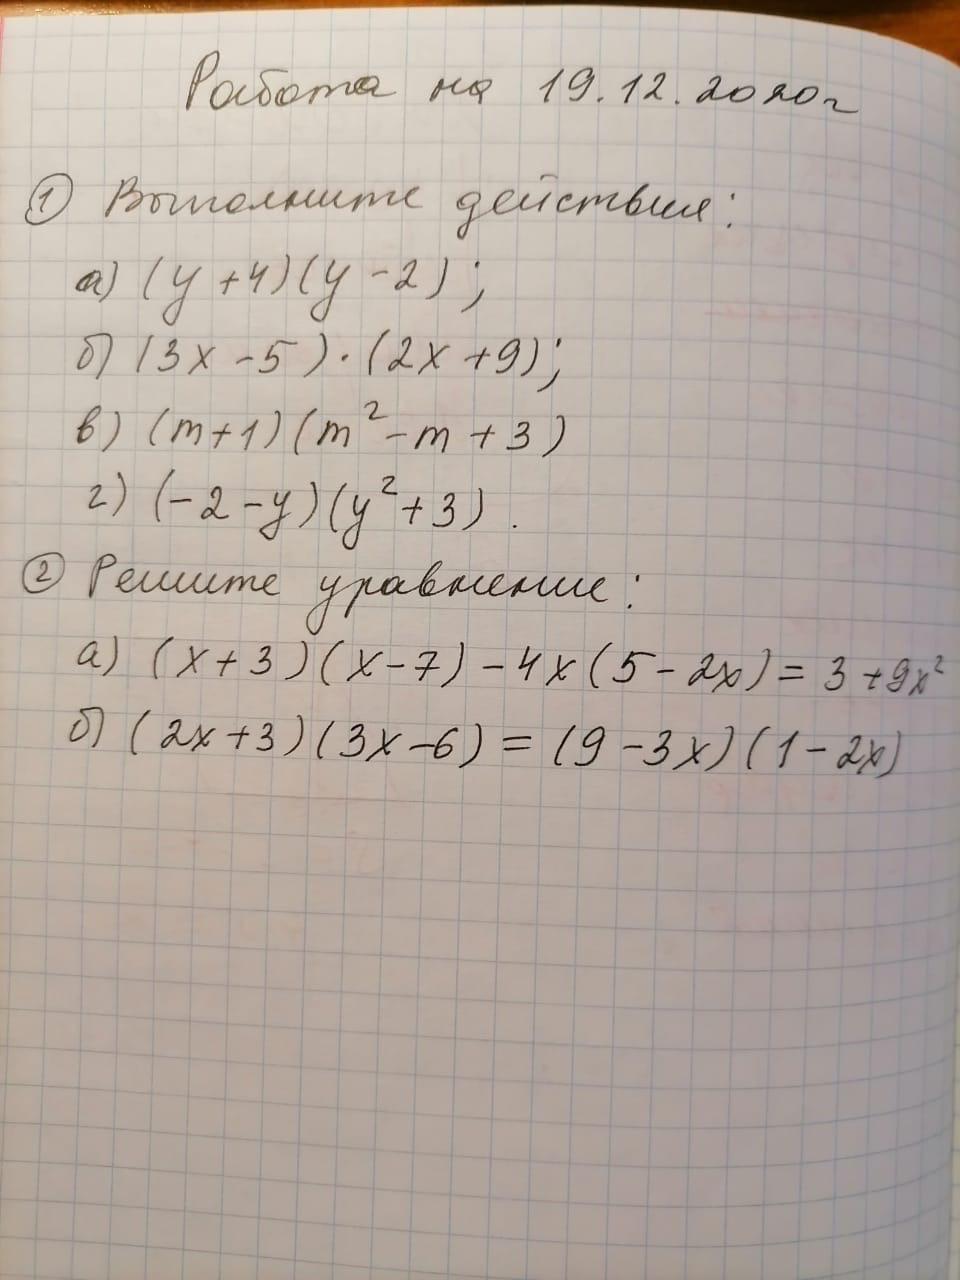 Работа на 19.12.2020г
① Выполните действия:
а) (y+4)(y-2);
б) (3x-5)·(2x+9);
в) (m+1)(m²-m+3)
г) (-2-y)(y²+3).
② Решите уравнение:
а) (x+3)(x-7)-4x(5-2x)=3+9x²
б) (2x+3)(3x-6)=(9-3x)(1-2x)